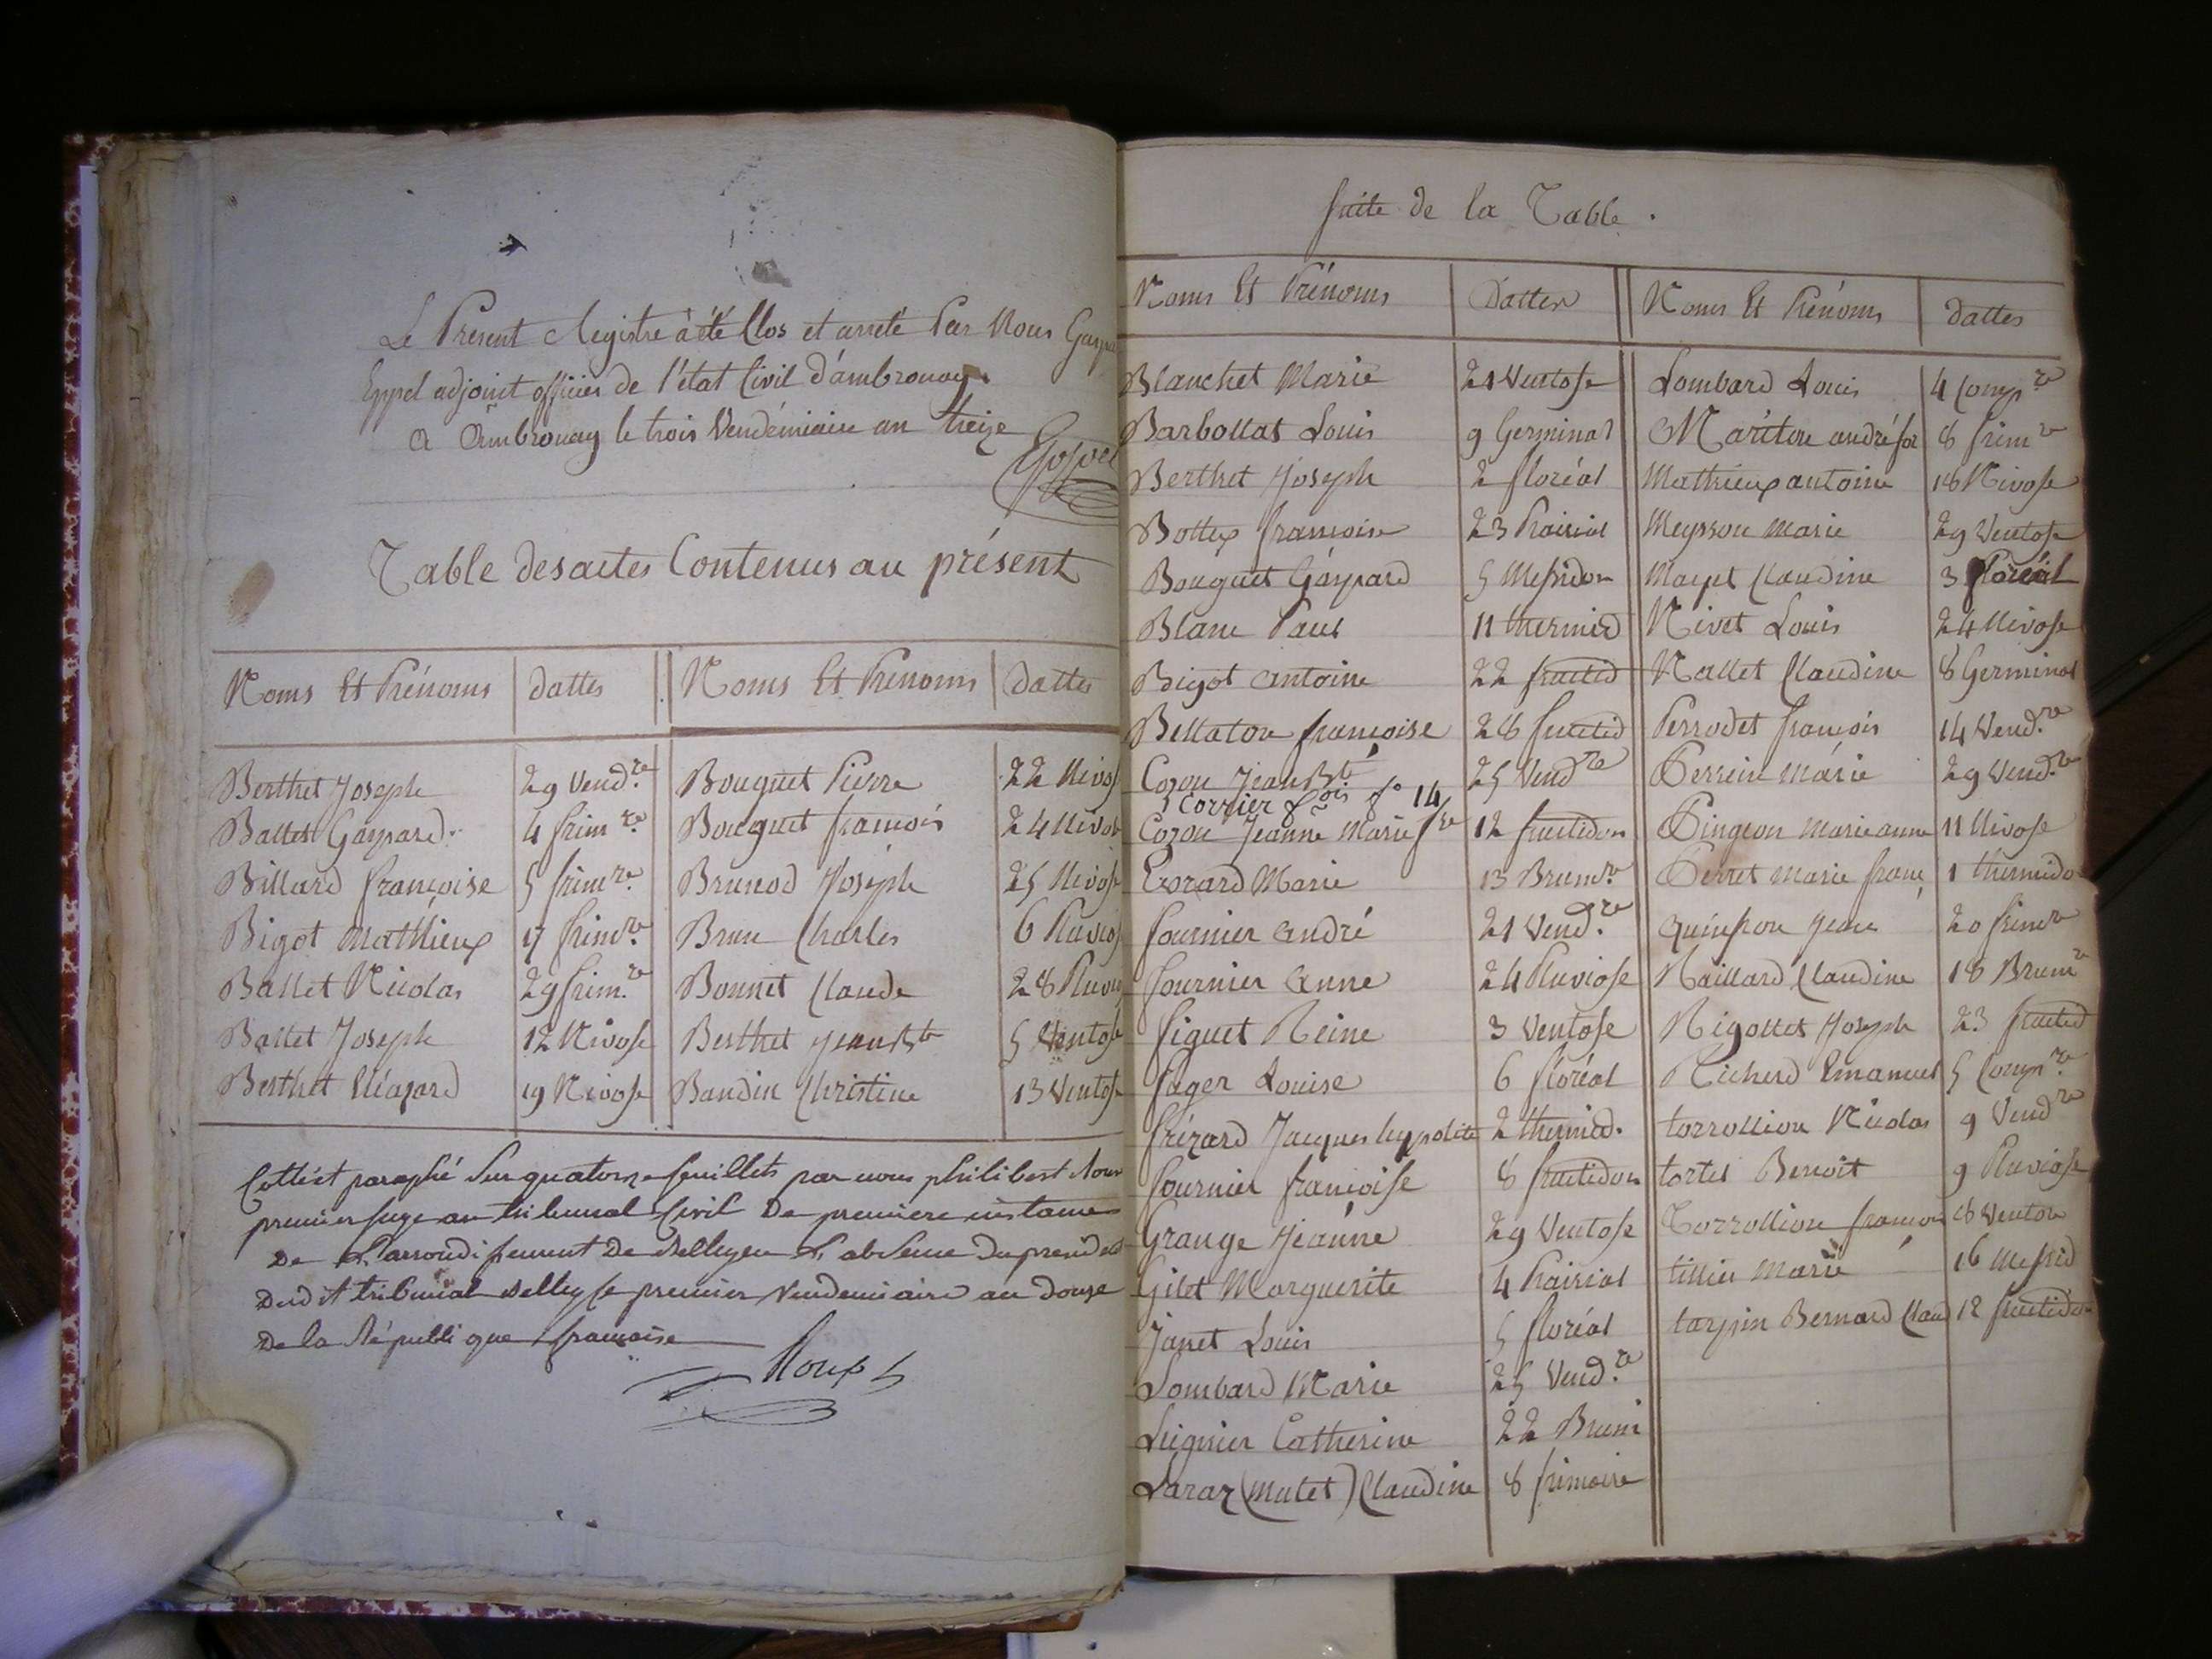 Le Présent Registre à été Clos et arreté Par Nous
Eppel adjoint officier de l'état Civil d'ambronay.
a Ambronay le trois Vendémiaire an treize
Eppel
Table des actes Contenus au présent
Noms Et Prénoms | dattes | Noms Et Prenoms | Dattes
Berthet Joseph | 29 Vend.re | Bouguet Pierre | 22 Nivos
Ballet Gaspard | 4 frim.re | Bouguet françois | 24 Nivos
Billard françoise | 5 frim.re | Brunod Joseph | 25 Nivose
Bigot Mathieux | 17 frim.re | Brun Charles | 6 Pluvios
Ballet Nicolas | 29 frim.re | Bonnet Claude | 28 Pluvio
Ballet Joseph | 12 Nivose | Berthet jean Bte | 5 Ventose
Berthet Eléazard | 19 Nivose | Baudin Christine | 13 Ventose
Cotté et paraphé Sur quatorze feuillets par nous philibert Roux
premier Juge au tribunal Civil De premiere instance
De L'arrondissement De Belley en L'absence Du président
Dudit tribunal Belley le premier Vendemiaire an Douze
De la République française
Roux
suite de la Table.
Noms Et Prénoms | Dattes | Noms Et Prénoms | dattes
Blanchet Marie | 21 Ventose | Lombard Louis | 4 Comp.re
Barbollat Louis | 9 Germinal | Mariton andré | 8 frim.re
Berthet Joseph | 2 floréal | Mathieux antoine | 18 Nivose
Bottex françoise | 23 Prairial | Meysson Marie | 29 Ventose
Bouguet Gaspard | 5 Messidor | Claudine | 3 floréal
Blanc Paul | 11 thermid | Nivet Louis | 24 Nivose
Bigot antoine | 22 fructid | Nallet Claudine | 8 Germinal
Bellaton françoise | 28 fructid | Perrodet françois | 14 Vend.re
Cozon Jean Bte | 25 Vend.re | Perrin Marie | 29 Vend.re
Corrier fois fo 14
Cozon Jeanne Marie | 12 fructidor | Pingeon Marie anne | 11 Nivose
Marie | 13 Brum.re | Perret Marie franç | 1 thermido
fournier André | 21 Vend.re | quinson jean | 20 frim.re
fournier Anne | 24 Pluviose | Raillard Claudine | 18 Brum.re
figuet Reine | 3 Ventose | Rigollet Joseph | 23 fructid
fager Louise | 6 floréal | Richerd Emanuel | 5 Comp.re
frézard Jacques hypolite | 2 thermid. | torrollion Nicolas | 9 Vend.re
fournier françoise | 8 fructidor | tortel Benoit | 9 Pluviose
Grange Jeanne | 29 Ventose | Torrollion françois | 18 Ventose
Gilet Marguerite | 4 Prairial | tillier Marie | 16 Messid
Janet Louis | 5 floréal | tarpin Bernard Clau | 12 fructidor
Lombard Marie | 25 Vend.re
Luignier Catherine | 22 Brum
Laraz (mulet) Claudine | 8 frimaire